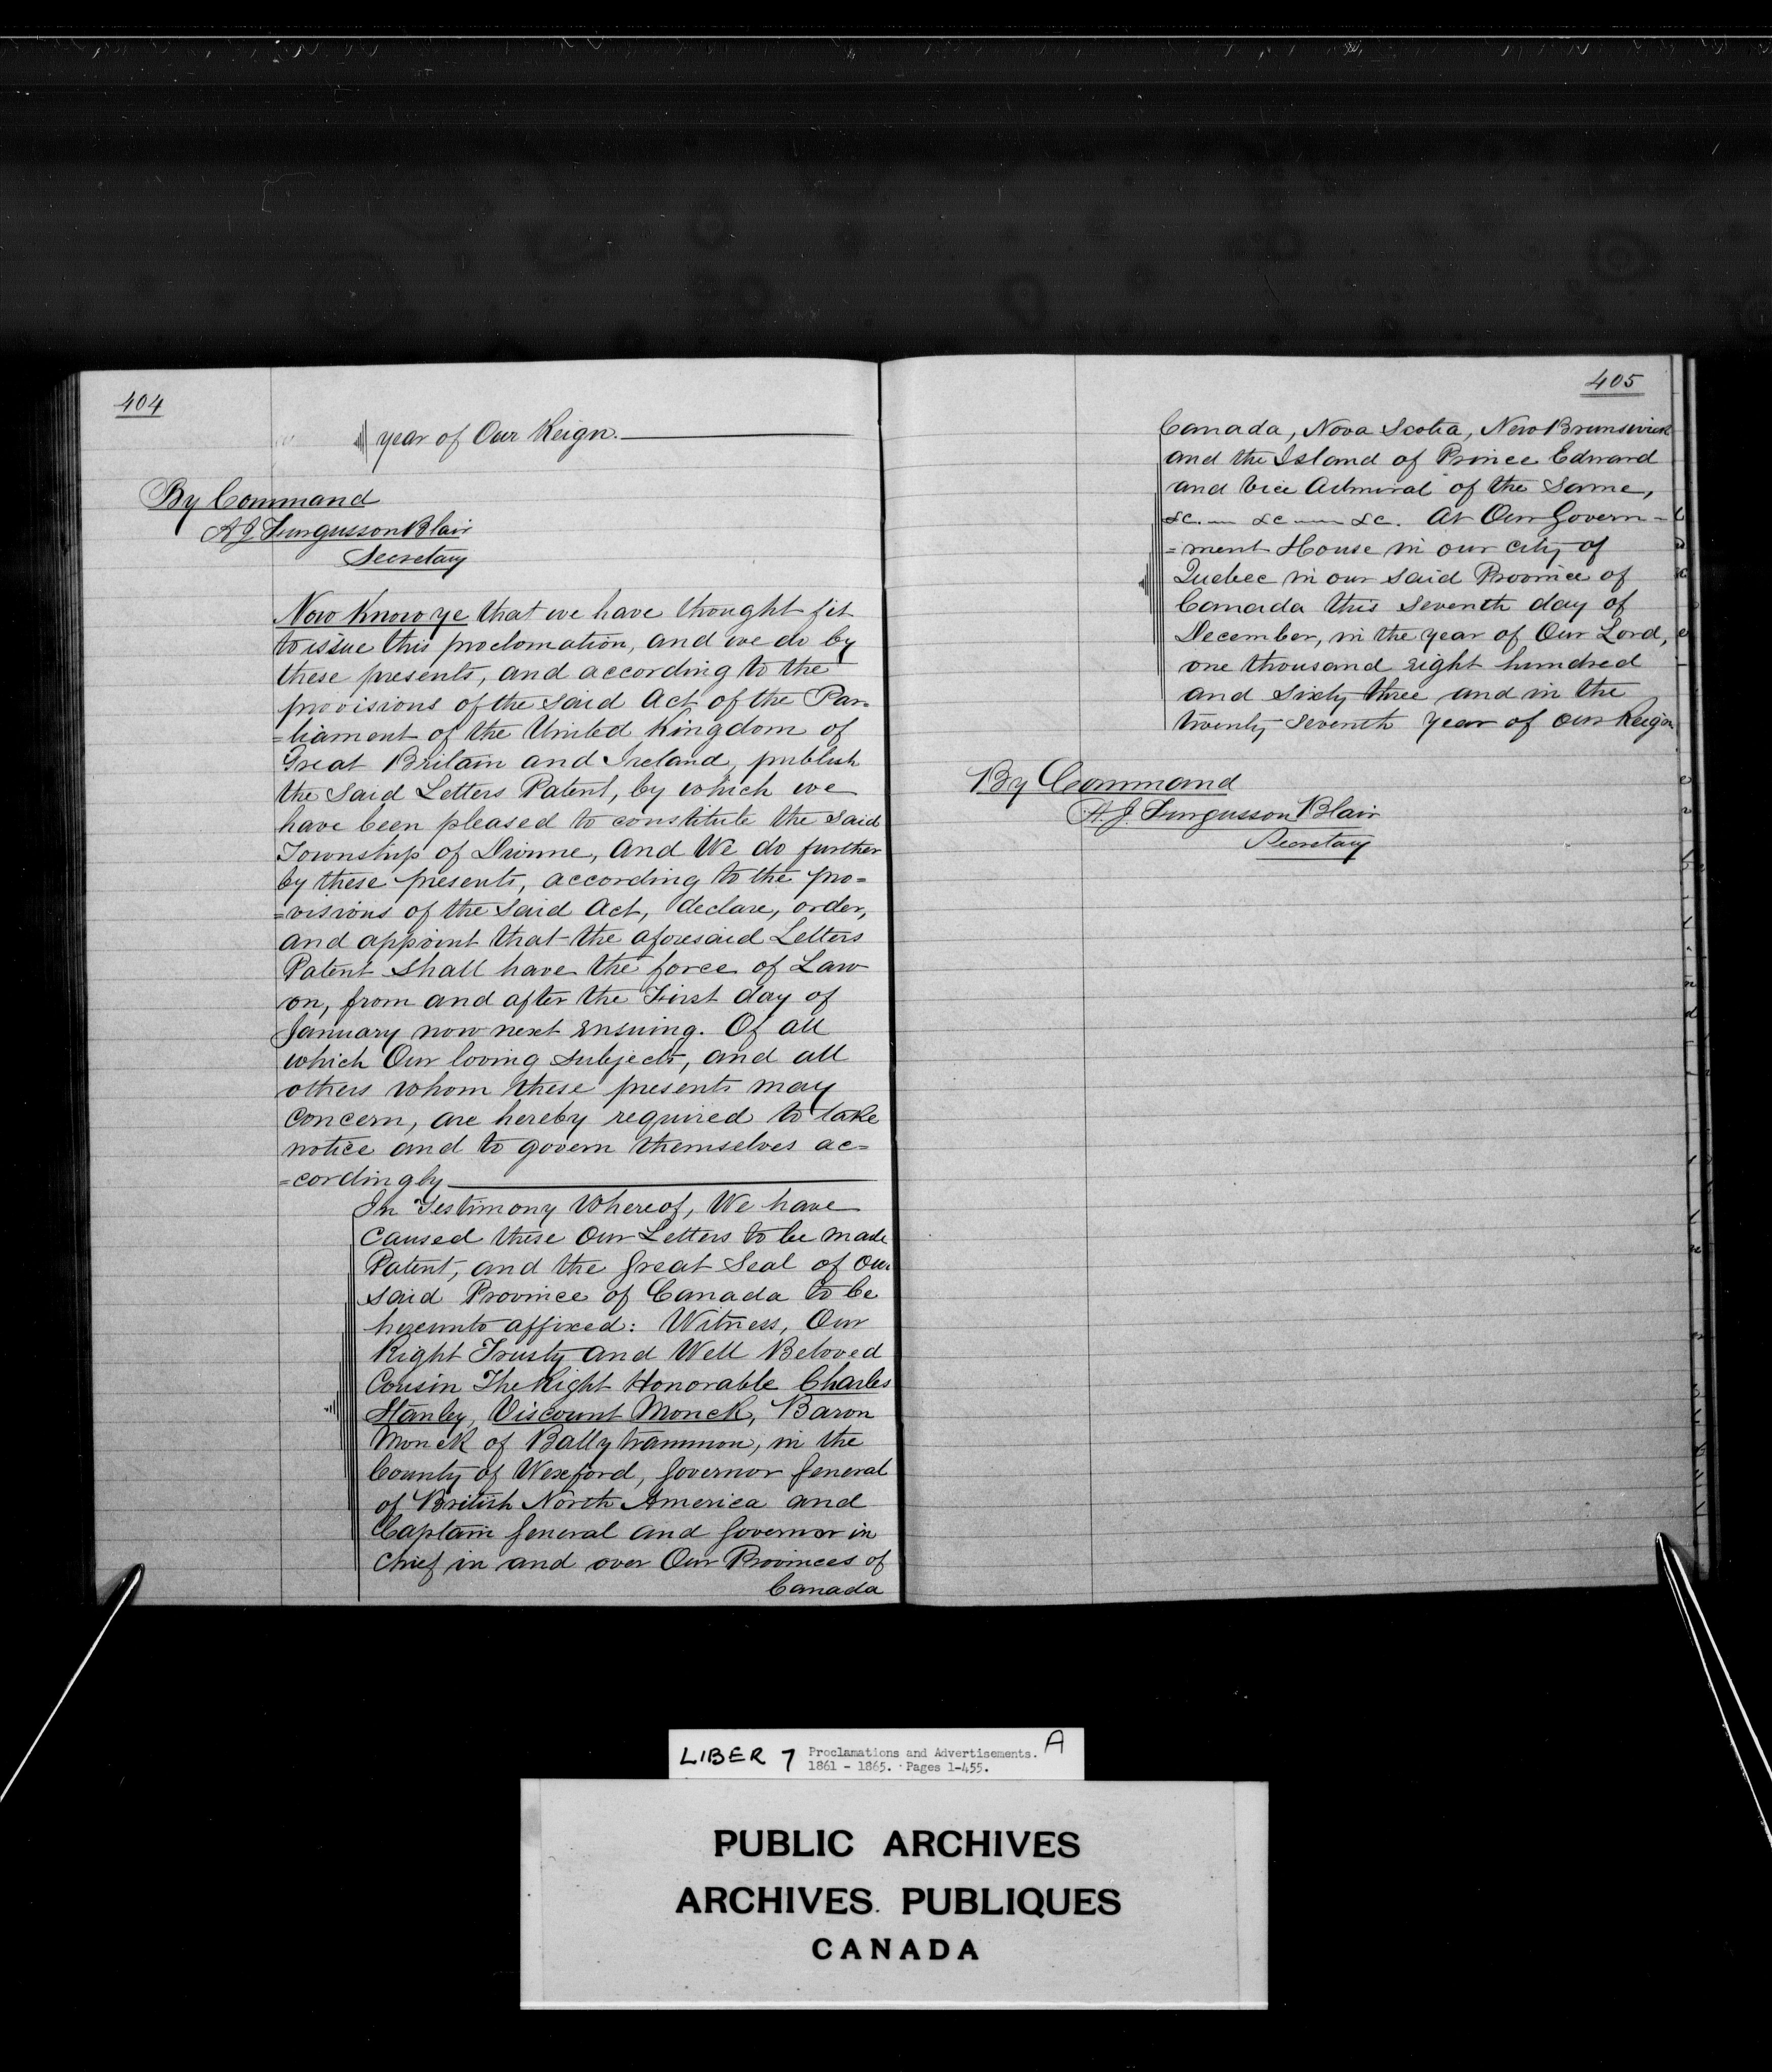 404
year of Our Reign.
By Command
A J. Furgusson Blair
Secretary
Now Know ye that we have thought fit
to issue this proclamation, and we do by
these presents, and according to the
provisions of the said Act of the Par-
=liament of the United Kingdom of
Great Britain and Ireland, publish
the said Letters Patent, by which we
have been pleased to constitute the said
Township of Dionne, and We do further
by these presents, according to the pro=
=visions of the said Act, declare, order,
and appoint that the aforesaid Letters
Patent shall have the force of Law
on, from and after the First day of
January now next ensuing. Of all
which Our loving subjects, and all
others whom these presents may
concern, are hereby required to take
notice and to govern themselves ac=
=cordingly
In Testimony Whereof, We have
caused these Our Letters to be made
Patent, and the Great Seal of Our
said Province of Canada to be
hereunto affixed: Witness, Our
Right Trusty and Well Beloved
Cousin The Right Honorable Charles
Stanley, Viscount Monck, Baron
Monck of Ballytrammon, in the
County of Wexford, Governor General
of British North America and
Captain General and Governor in
Chief in and over Our Provinces of
Canada
405
Canada, Nova Scotia, New Brunswick
and the Island of Prince Edward
and Vice Admiral of the Same,
&c. — &c — &c. At Our Govern=
=ment House in our city of
Quebec in our said Province of
Canada this seventh day of
December, in the year of Our Lord,
one thousand eight hundred
and sixty three and in the
twenty seventh year of our Reign
By Command
A. J. Furgusson Blair
Secretary
LIBER 7 Proclamations and Advertisements. A
1861 - 1865. Pages 1-455.
PUBLIC ARCHIVES
ARCHIVES PUBLIQUES
CANADA